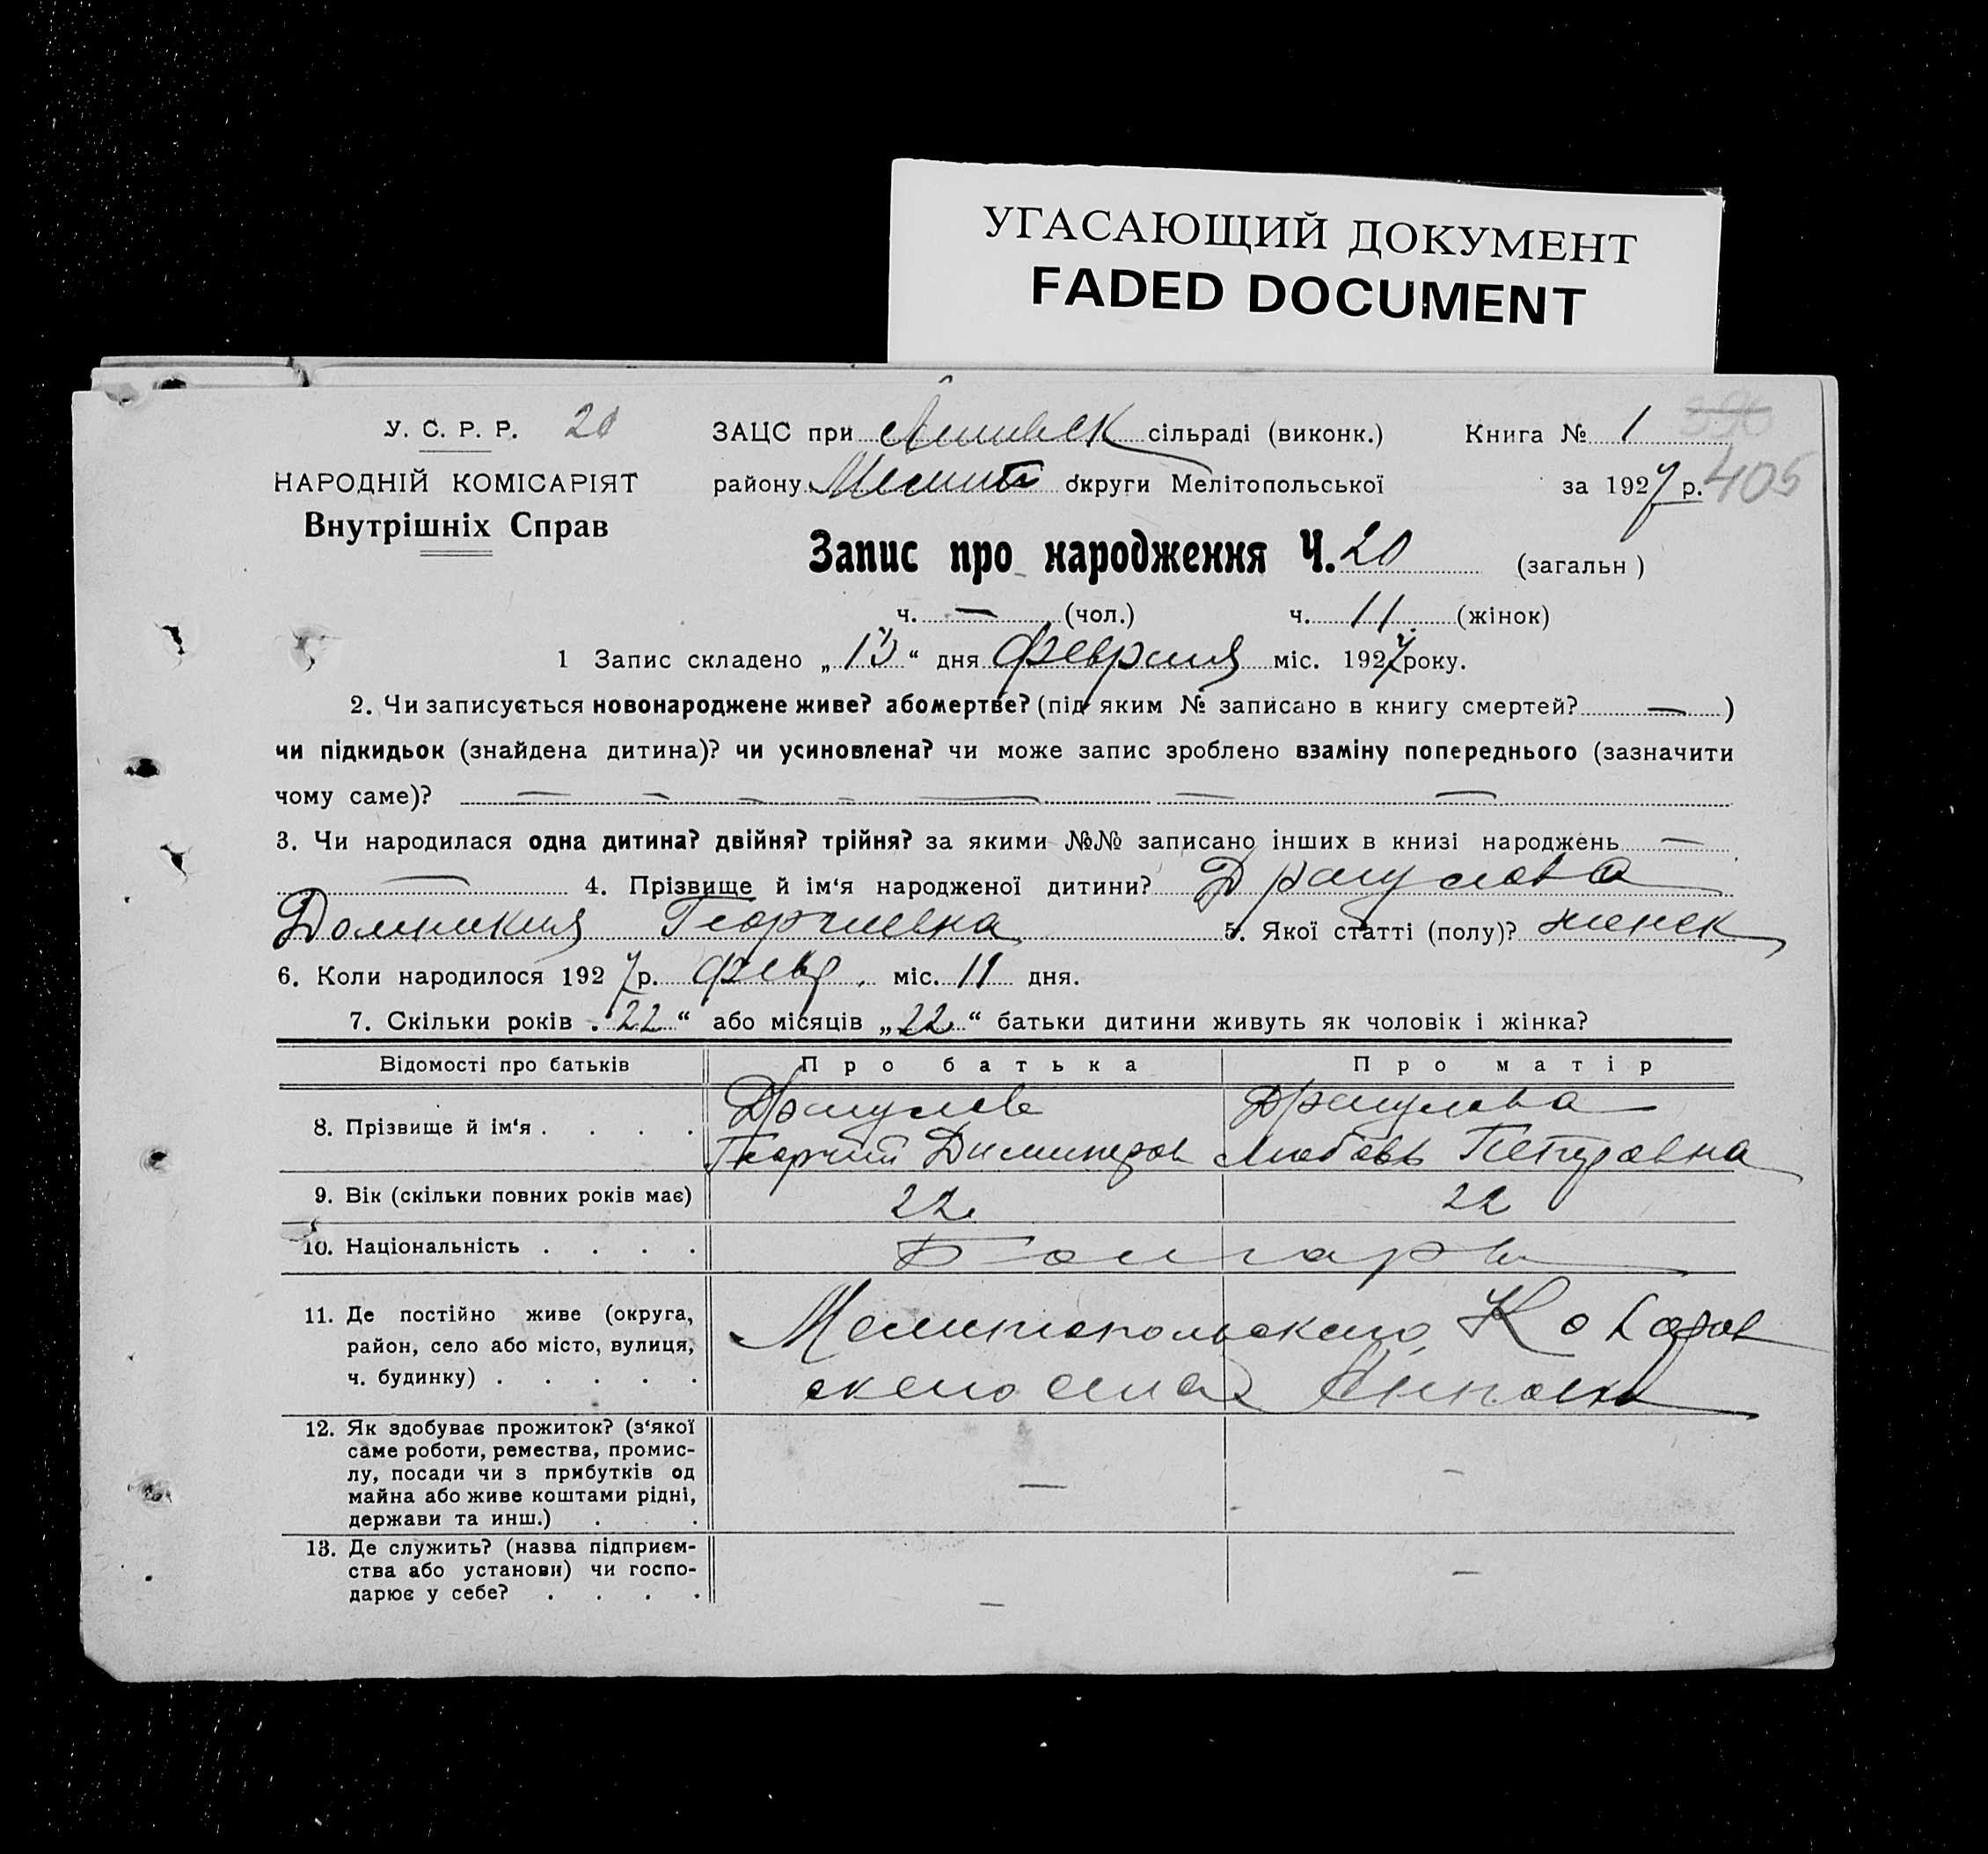 УГАСАЮЩИЙ ДОКУМЕНТ
FADED DOCUMENT
У. С. Р. Р. 20
ЗАЦС при сільраді (виконк.) Книга № 1
НАРОДНІЙ КОМІСАРІЯТ
Внутрішніх Справ
району Мелит округи Мелітопольської за 1927 р. 405
Запис про народження Ч. 20 (загальн)
ч. — (чол.) ч. 11 (жінок)
1 Запис складено „13“ дня февраля міс. 1927 року.
2. Чи записується новонароджене живе? або мертве? (під яким № записано в книгу смертей? — )
чи підкидьок (знайдена дитина)? чи усиновлена? чи може запис зроблено взаміну попереднього (зазначити
чому саме)? — — — — — — —
3. Чи народилася одна дитина? двійня? трійня? за якими №№ записано інших в книзі народжень —
— 4. Прізвище й ім‘я народженої дитини? Драгулова
Домникия Георгиевна 5. Якої статті (полу)? женск
6. Коли народилося 1927 р. февр. міс. 11 дня.
7. Скільки років „22“ або місяців „22“ батьки дитини живуть як чоловік і жінка?
Відомості про батьків Про батька Про матір
8. Прізвище й ім‘я . . . . Драгулов Драгулова
Георгий Димитров Любовь Петровна
9. Вік (скільки повних років має) 22 22
10. Національність . . . . Болгары
11. Де постійно живе (округа,
район, село або місто, вулиця,
ч. будинку) . . . . .
Мелитопольского
села
12. Як здобуває прожиток? (з‘якої
саме роботи, ремества, промис-
лу, посади чи з прибутків од
майна або живе коштами рідні,
держави та инш.) . . . — —
13. Де служить? (назва підприєм-
ства або установи) чи госпо-
дарює у себе? . . . . — —